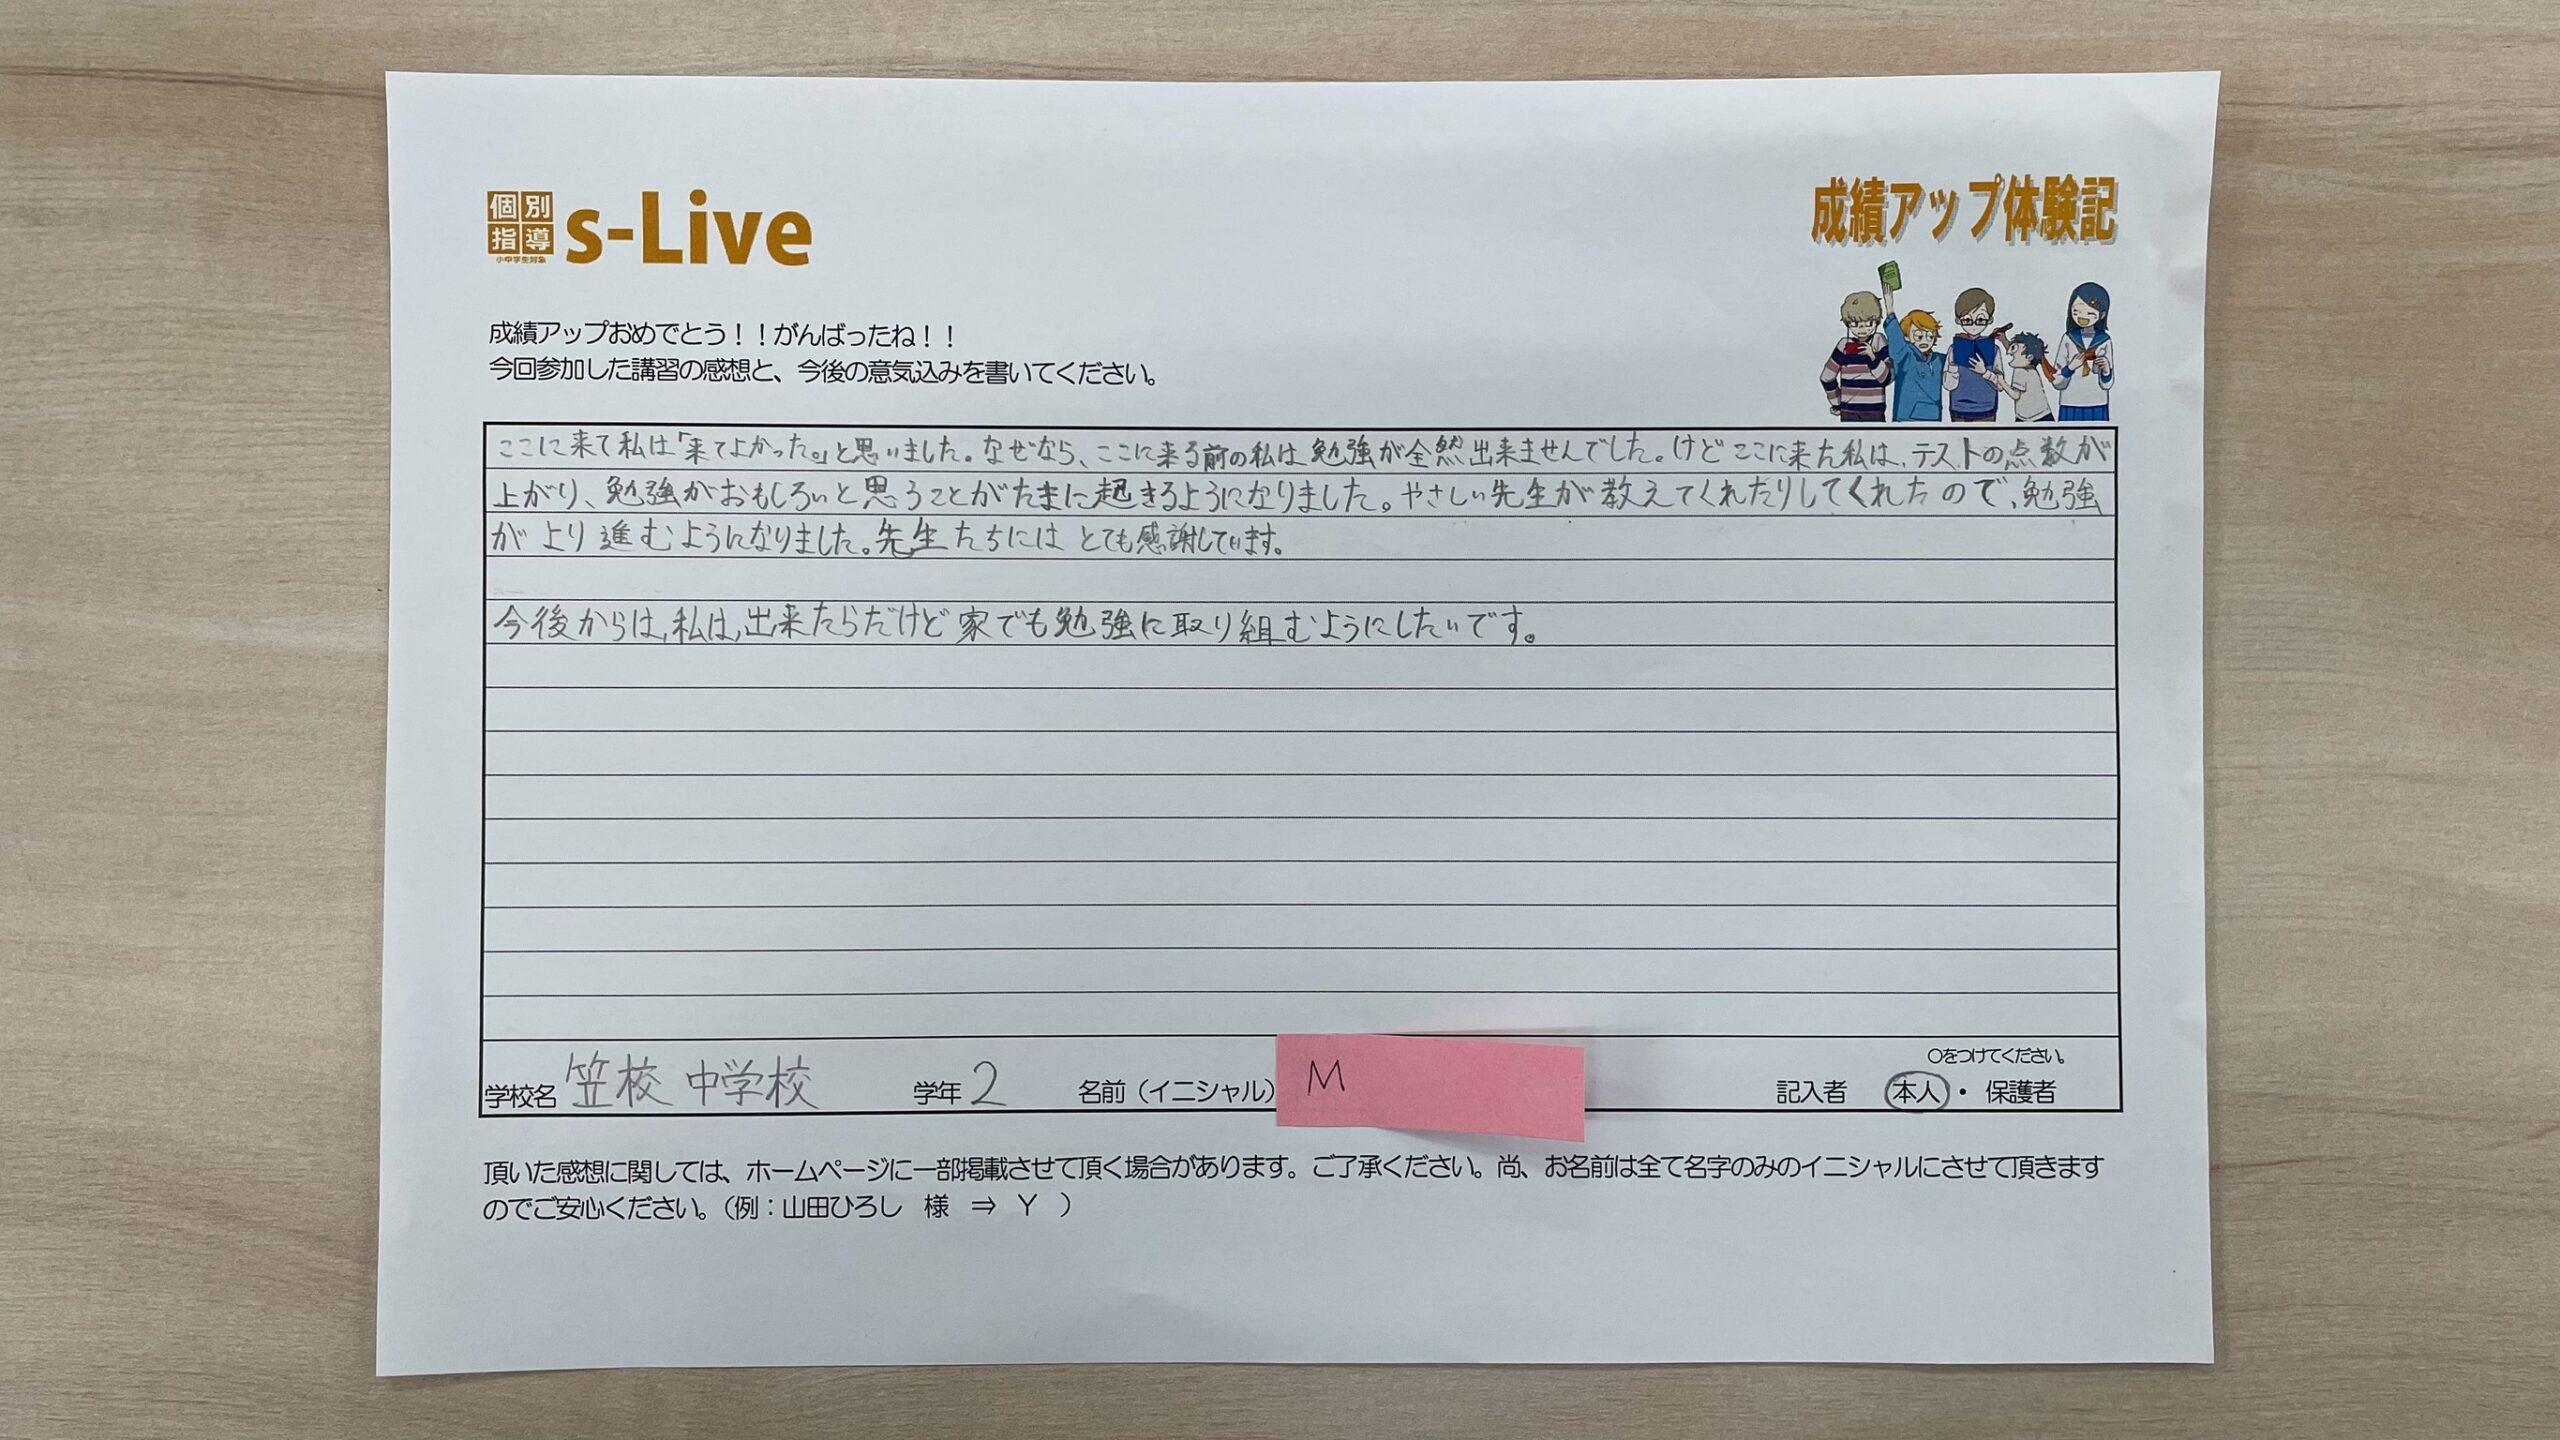 個別指導 s-Live
小中学生対象
成績アップ体験記
成績アップおめでとう！！がんばったね！！
今回参加した講習の感想と、今後の意気込みを書いてください。
ここに来て私は「来てよかった。」と思いました。なぜなら、ここに来る前の私は勉強が全然出来ませんでした。けどここに来た私は、テストの点数が
上がり、勉強がおもしろいと思うことがたまに起きるようになりました。やさしい先生が教えてくれたりしてくれたので、勉強
がより進むようになりました。先生たちにはとても感謝しています。
今後からは、私は、出来たらだけど家でも勉強に取り組むようにしたいです。
〇をつけてください。
学校名 笠校中学校 学年 2 名前（イニシャル） M 記入者 本人・保護者
頂いた感想に関しては、ホームページに一部掲載させて頂く場合があります。ご了承ください。尚、お名前は全て名字のみのイニシャルにさせて頂きます
のでご安心ください。（例：山田ひろし 様 ⇒ Y ）